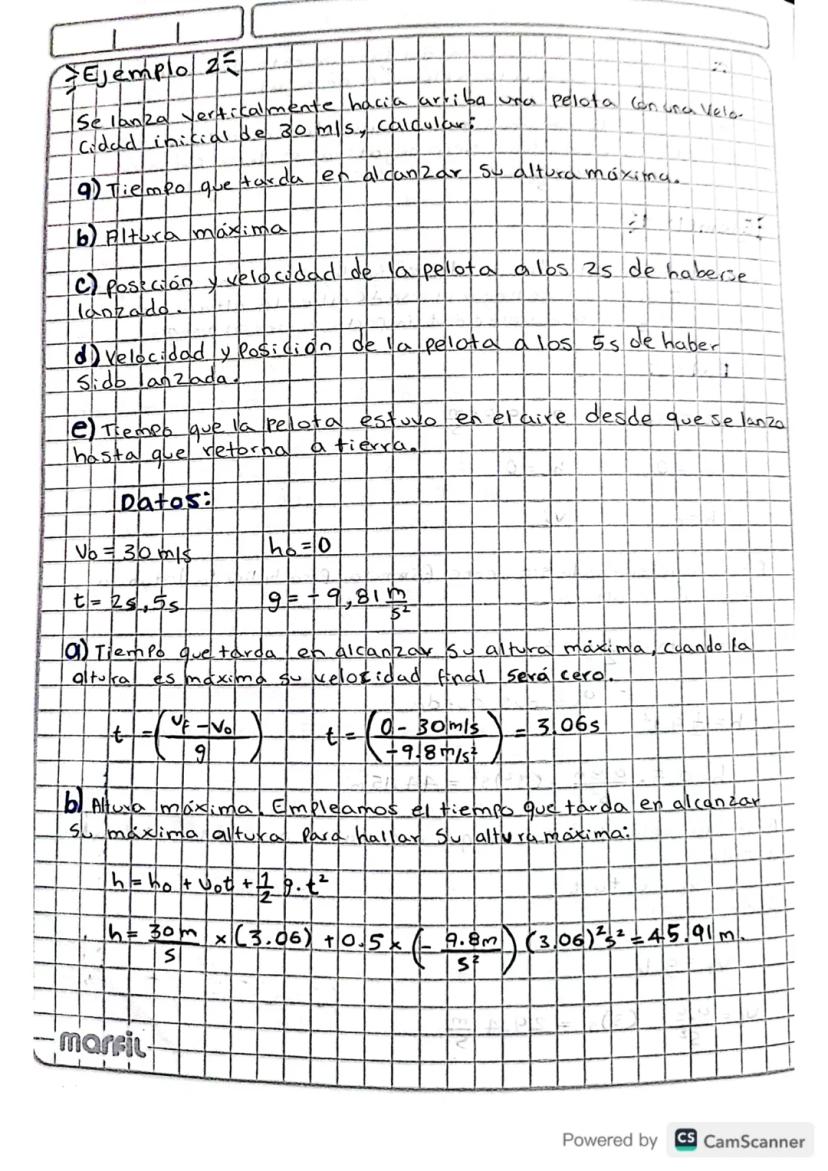 Ejemplo 2
Se lanza verticalmente hacia arriba una pelota con una velo-
cidad inicial de 30 m/s, calcular:
a) Tiempo que tarda en alcanzar su altura máxima.
b) Altura máxima
c) posición y velocidad de la pelota a los 2s de haberse
lanzado.
d) velocidad y Posición de la pelota a los 5s de haber
sido lanzada.
e) Tiempo que la pelota estuvo en el aire desde que se lanzo
hasta que retorna a tierra.
Datos:
v₀ = 30 m/s h₀ = 0
t = 2s, 5s g = -9,81 m/s²
a) Tiempo que tarda en alcanzar su altura máxima, cuando la
altura es máxima su velocidad final será cero.
t = (vf - v₀ / g) t = (0 - 30 m/s / -9.8 m/s²) = 3.06 s
b) Altura máxima. Empleamos el tiempo que tarda en alcanzar
su máxima altura para hallar su altura máxima:
h = h₀ + v₀t + 1/2 g.t²
h = 30m/s × (3.06) + 0.5 × (- 9.8m/s²) (3.06)²s² = 45.91 m.
marfil
Powered by CS CamScanner